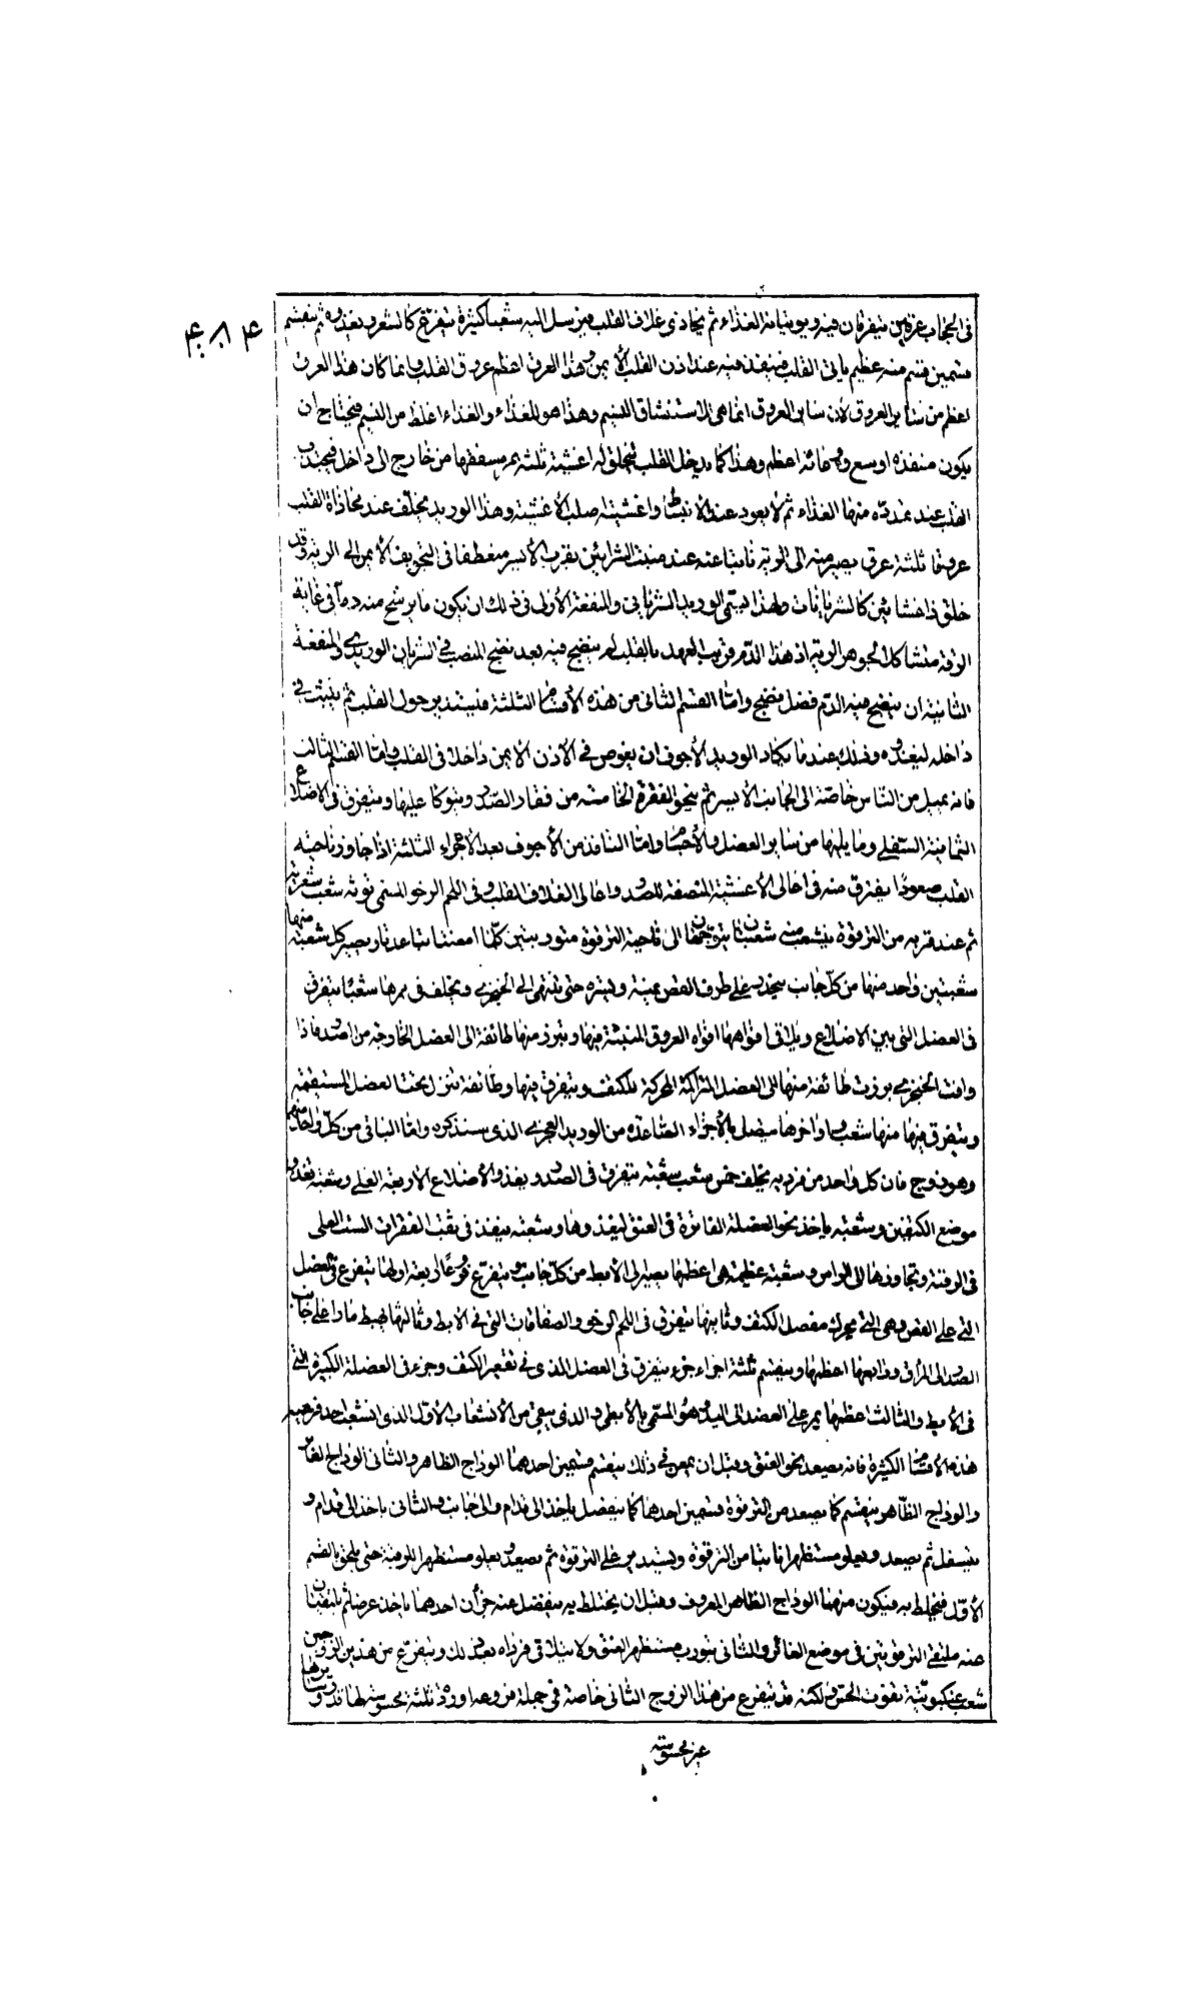 في الحجاب عرقين يتفرقان فيه ويوتيانه الغذاء ثم يحاذى غلاف القلب فيرسل اليه شعبا كثيرة يتفرع كالشعر ويغذوه ثم ينقسم
قسمين قسم منه عظيم ياتى القلب فينفذ فيه عند اذن القلب الأيمن وهذا العرق اعظم عروق القلب وانما كان هذا العرق
اعظم من سائر العروق لان سائر العروق انما هى لاستنشاق النسيم وهذا هو للغذاء والغذاء اغلظ من النسيم فيحتاج ان
يكون منفذه اوسع ووعائه اعظم وهذا كما يدخل القلب يتخلق له اغشية ثلثة مسقفها من خارج الى داخل فيجتذب
القلب عند تمدده منها الغذاء ثم لا يعود عند الانبساط واغشيته اصلب الأغشية وهذا الوريد يخلف عند محاذاة القلب
عروقا ثلثة عرق يصير منه الى الرية ناتيا عنه عند منبت الشرائين بقرب الأيسر منعطفا فى التجويف الأيمن الى الرية وقد
خلق ذا غشائين كالشريانات ولهذا يسمى الوريد الشريانى والمنفعة الأولى فى ذلك ان يكون ما يرشح منه دما فى غاية
الرقة مشاكلا لجوهر الرية اذ هذا الدم قريب العهد بالقلب لم ينضج فيه بعد نضج المنصب فى الشريان الوريدى والمنفعة
الثانية ان ينضج فيه الدم فضل نضج واما القسم الثانى من هذه الأقسام الثلثة فيستدير حول القلب ثم ينبت فى
داخله ليغذوه وذلك عندما يكاد الوريد الأجوف ان يغوص فى الاذن الايمن داخلا فى القلب واما القسم الثالث
فانه يميل من الناس خاصة الى الجانب الأيسر ثم ينحو نحو الفقرة الخامسة من فقار الصدر ويتوكا عليها ويتفرق فى الاضلاع
الثمانية السفلى وما يليها من سائر العضل والأجسام واما النافذ من الأجوف بعد الأجزاء الثلثة اذا جاوز ناحية
القلب صعودا يفرق منه فى اعالى الأغشية المنصفة للصدر واعالى الغلاف القلب وفى اللحم الرخو المسمى توثه شعب شعرية
ثم عند قربه من الترقوة ينشعب منه شعبتان يتوجهان الى ناحية الترقوة متوربتين كلما امعنتا تباعدتا ويصير كل شعبة منها
شعبتين واحد منها من كل جانب ينحدر على طرف القص يمنة ويسرة حتى تنتهى الى الخنجرى ويخلف فى ممرها شعبا يتفرق
فى العضل التى بين الاضلاع ويلاقى افواهها افواه العروق المنبثة فيها ويبرز منها طائفة الى العضل الخارجة من الصدر فاذا
وافت الخنجرى برزت طائفة منها الى العضل المتراكمة المحركة للكتف ويتفرق فيها وطائفة تنزل تحت العضل المستقيمة
ويتفرق فيها منها شعب واواخرها يتصل بالأجزاء الصاعدة من الوريد العجزى الذى سنذكره واما الباقى من كل واحد منهما
وهو زوج فان كل واحد من فرديه يخلف خمس شعب شعبة يتفرق فى الصدر ويغذو الأضلاع الأربعة العليا وشعبة تغذو
موضع الكتفين وشعبة ياخذ نحو العضلة الغائرة فى العنق ليغذوها وشعبة ينفذ فى ثقب الفقرات الست العلى
فى الرقبة وتجاوزها الى الراس وشعبة عظيمة هى اعظمها يصير الى الأبط من كل جانب ويتفرع فروعا اربعة اولها يتفرع فى العضل
التى على القص وهى التى تحرك مفصل الكتف وثانيها يتفرق فى اللحم الرخو والصفاقات التى فى الابط وثالثها يهبط مارا على جانب
الصدر الى المراق ورابعها اعظمها وينقسم ثلثة اجزاء جزء يتفرق فى العضل الذى فى تقعير الكتف وجزء فى العضلة الكبيرة التى
فى الأبط والثالث اعظمها يمر على العضد الى اليد وهو المسمى بالأبطى والذى يبقى من الأنشعاب الأول الذى انشعب احد فرعيه
هذه الأقسام الكثيرة فانه يصعد نحو العنق وقبل ان يمعن فى ذلك ينقسم قسمين احدهما الوداج الظاهر والثانى الوداج الغائر
والوداج الظاهر ينقسم كما يصعد من الترقوة قسمين احدهما كما ينفصل ياخذ الى قدام والى جانب والثانى ياخذ الى قدام و
يتسفل ثم يصعد ويعلو مستظهرا ثانيا من الترقوة ويستدير على الترقوة ثم يصعد ويعلو مستظهرا للرقبة حتى يلحق بالقسم
الأول فيختلط به فيكون منهما الوداج الظاهر المعروف وقبل ان يختلط به ينفصل عنه جزآن احدهما ياخذ عرضا ثم يلتقيان
عند ملتقى الترقوتين فى موضع الغائر والثانى يتورب مستظهر العنق ولا يتلاقى فرداه بعد ذلك ويتفرع من هذين الزوجين
شعب عنكبوتية تفوت الحس ولكنه قد يتفرع من هذا الزوج الثانى خاصة فى جملة فروعه اوردة ثلثة محسوسة لها قدر وسائرها
غير محسوسة